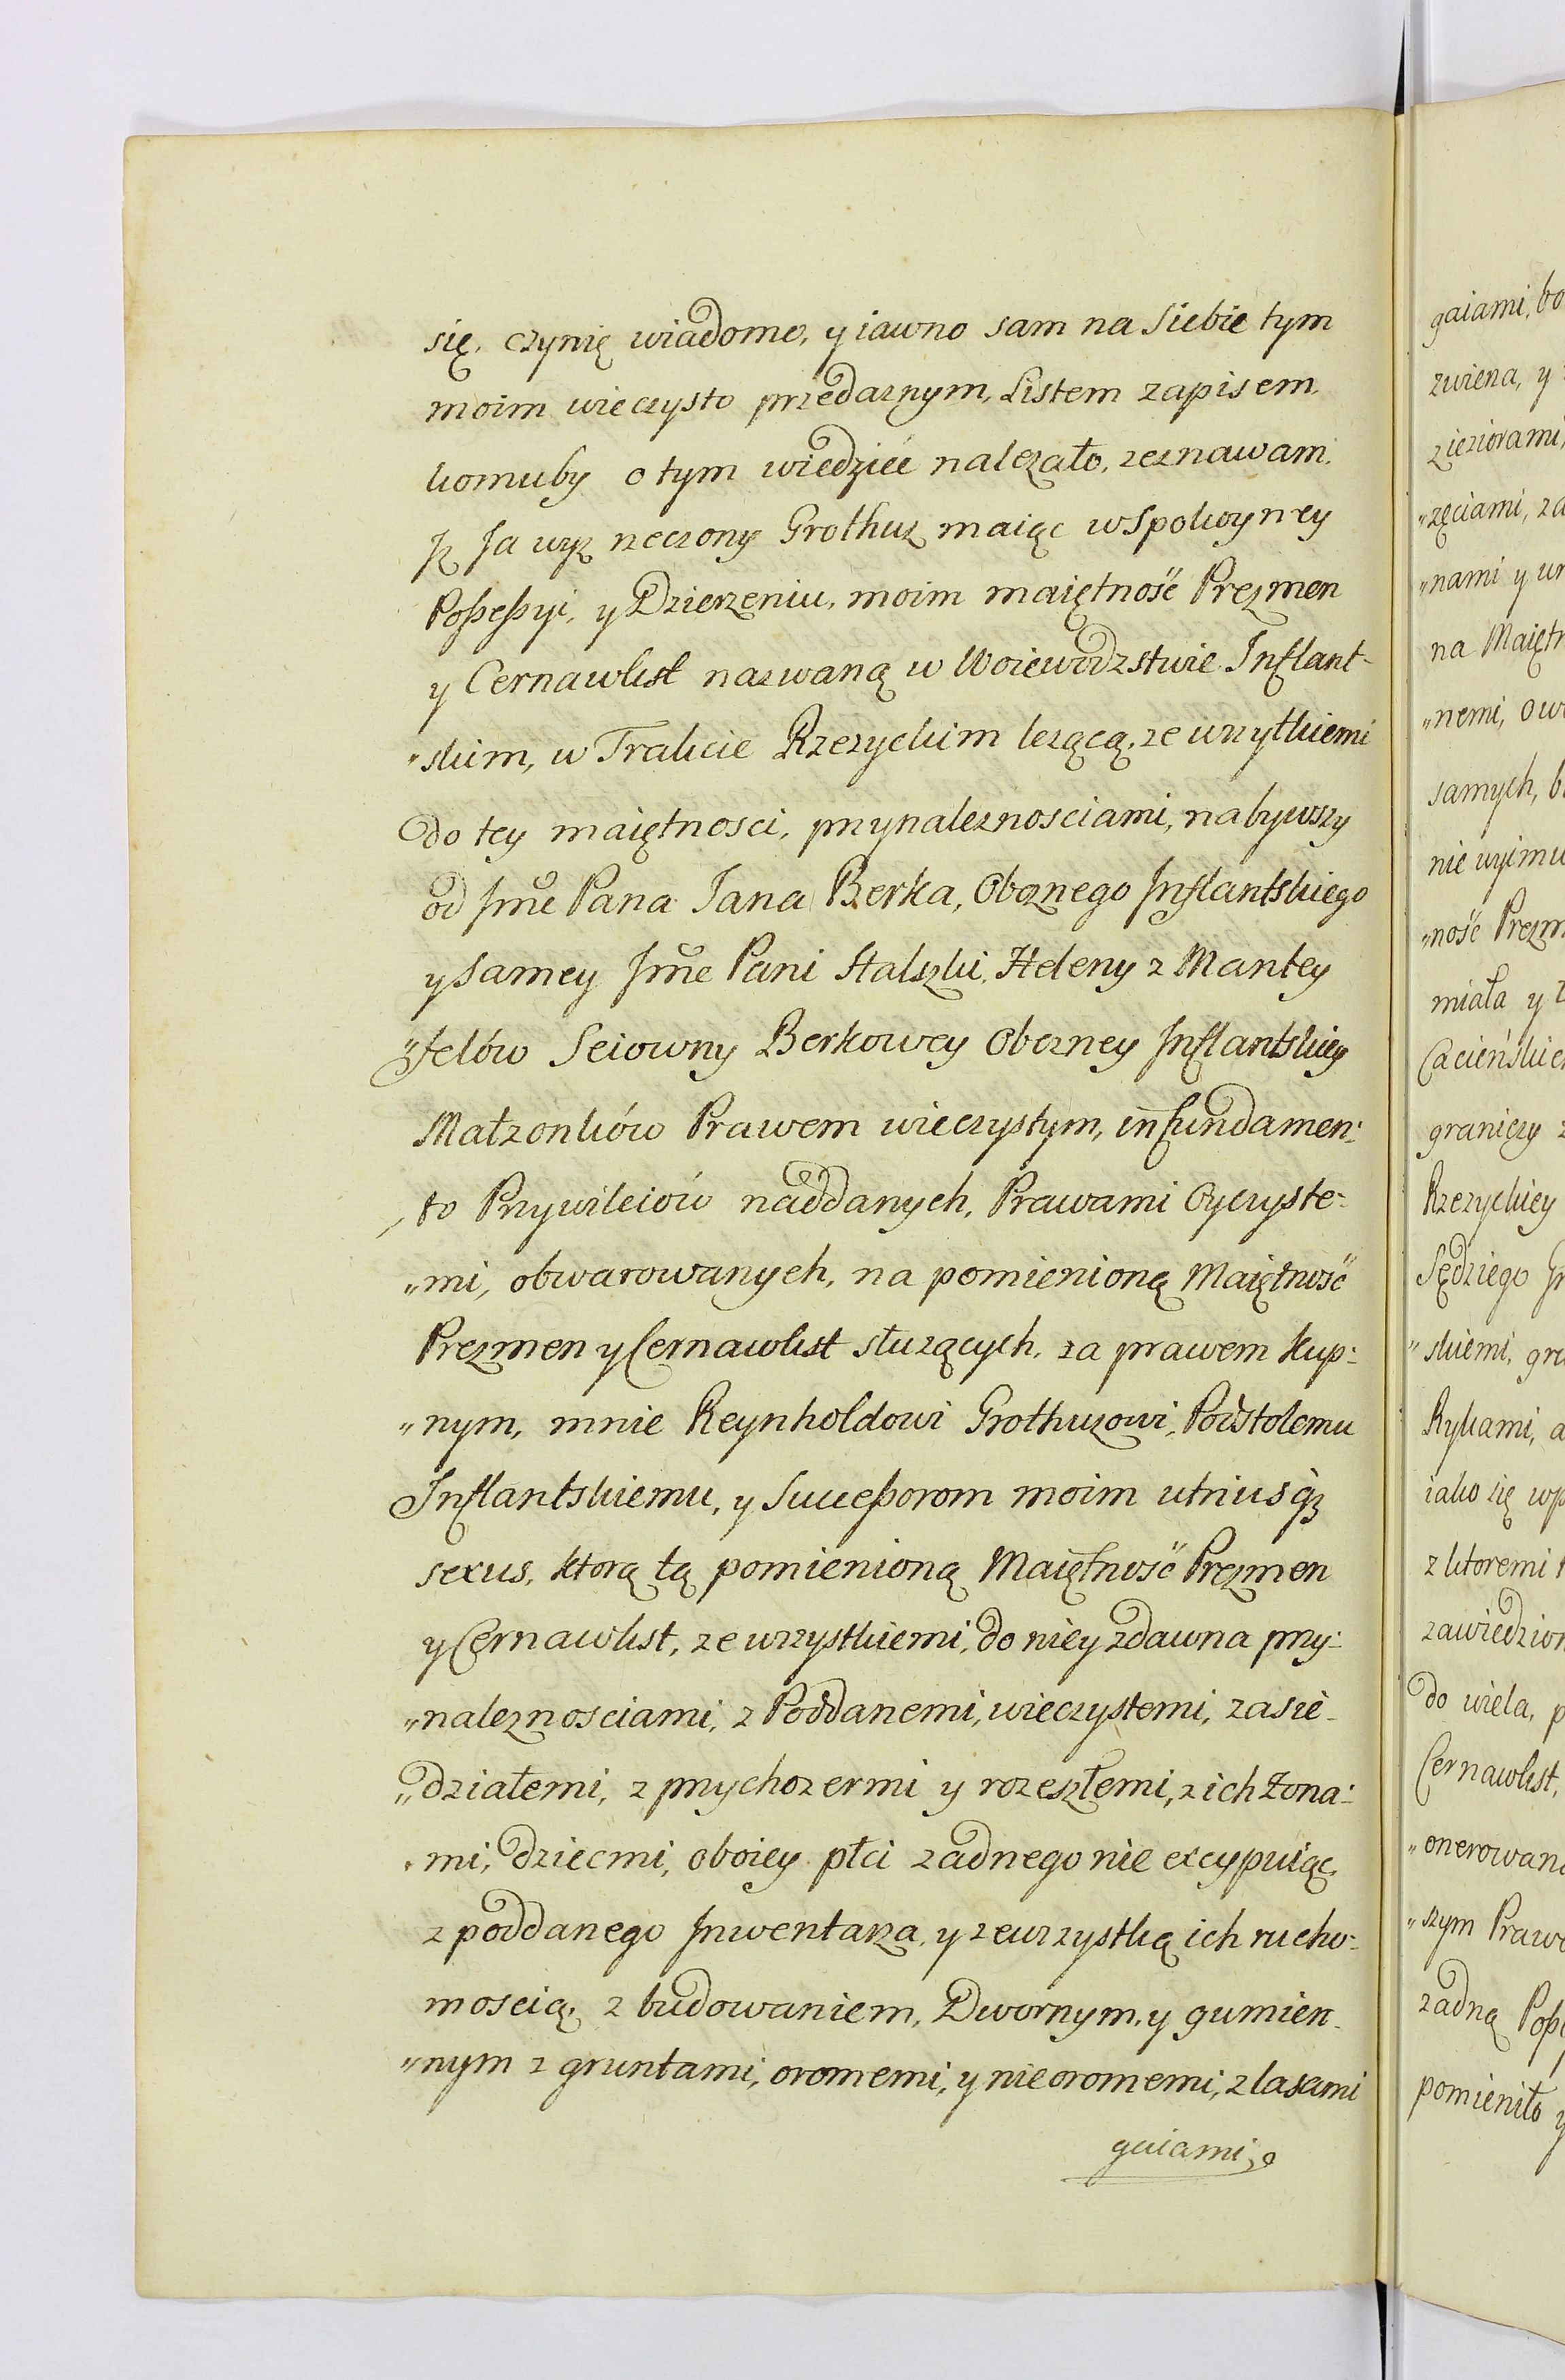 się, czynię wiadomo, y iawno sam na Siebie tym
moim wieczysto przedaznym, Listem zapisem,
komuby o tym wiedzieć należało, zeznawam,
Jż Ja wyż rzeczony Grothuz maiąc wSpokoyney
Poßeßyi, y Dzierzeniu, moim maiętność Prezmen
y Cernawkst nazwaną w Woiewodzstwie Inflant-
„skim, w Trakcie Rzezyckim lezącą, ze wszytkiemi
do tey maiętnosci, przynaleznosciami, nabywszy
od Jme Pana Jana Berka, Oboznego Jnflantskiego
y Samey Jme Pani Halszki, Heleny z Mantey
„felów Seiowny Berkowey Obozney Jnflantskiey
Małzonków Prawem wieczystym, in fundamen:
to Przywileiów naddanych, Prawami Oyczyste:
„mi, obwarowanych, na pomienioną Maiętność
Prezmen y Cernawkst słuzących, za prawem kup:
„nym, mnie Reynholdowi Grothuzowi, Podstolemu
Jnflantskiemu, y Succeßorom moim utriusqz
sexus, ktorą tą pomienioną Maiętność Prezmen
y Cernawkst, ze wszystkiemi, do niey zdawna przy:
„naleznosciami, z Poddanemi, wieczystemi, zasie-
„działemi, z przychozermi y rozeszłemi, z ich Żona:
„mi, dziecmi, oboiey płci zadnego nie excypuiąc,
z poddanego Jnwentarza, y zewszystką ich rucho:
moscią, z budowaniem, Dwornym, y gumien-
„nym z gruntami, oromemi, y nieoromemi, z lasami
gaiami,
gaiami, bo
zwiena, y
z ieziorami,
„zęciami, za
„nami y ur
na Maiętn
„nemi, ow
samych, b
nie wyimu
„ność Prezm
miała y t
Cacieńskie
graniczy z
Rzezyckiey
Sędziego Jn
„skiemi, gra
Rykami, a
iako się wp
z ktoremi
zawiedzion
do wiela, p
Cernawkst,
„onerowana
„szym Prawe
zadną Poß
pomieniło y